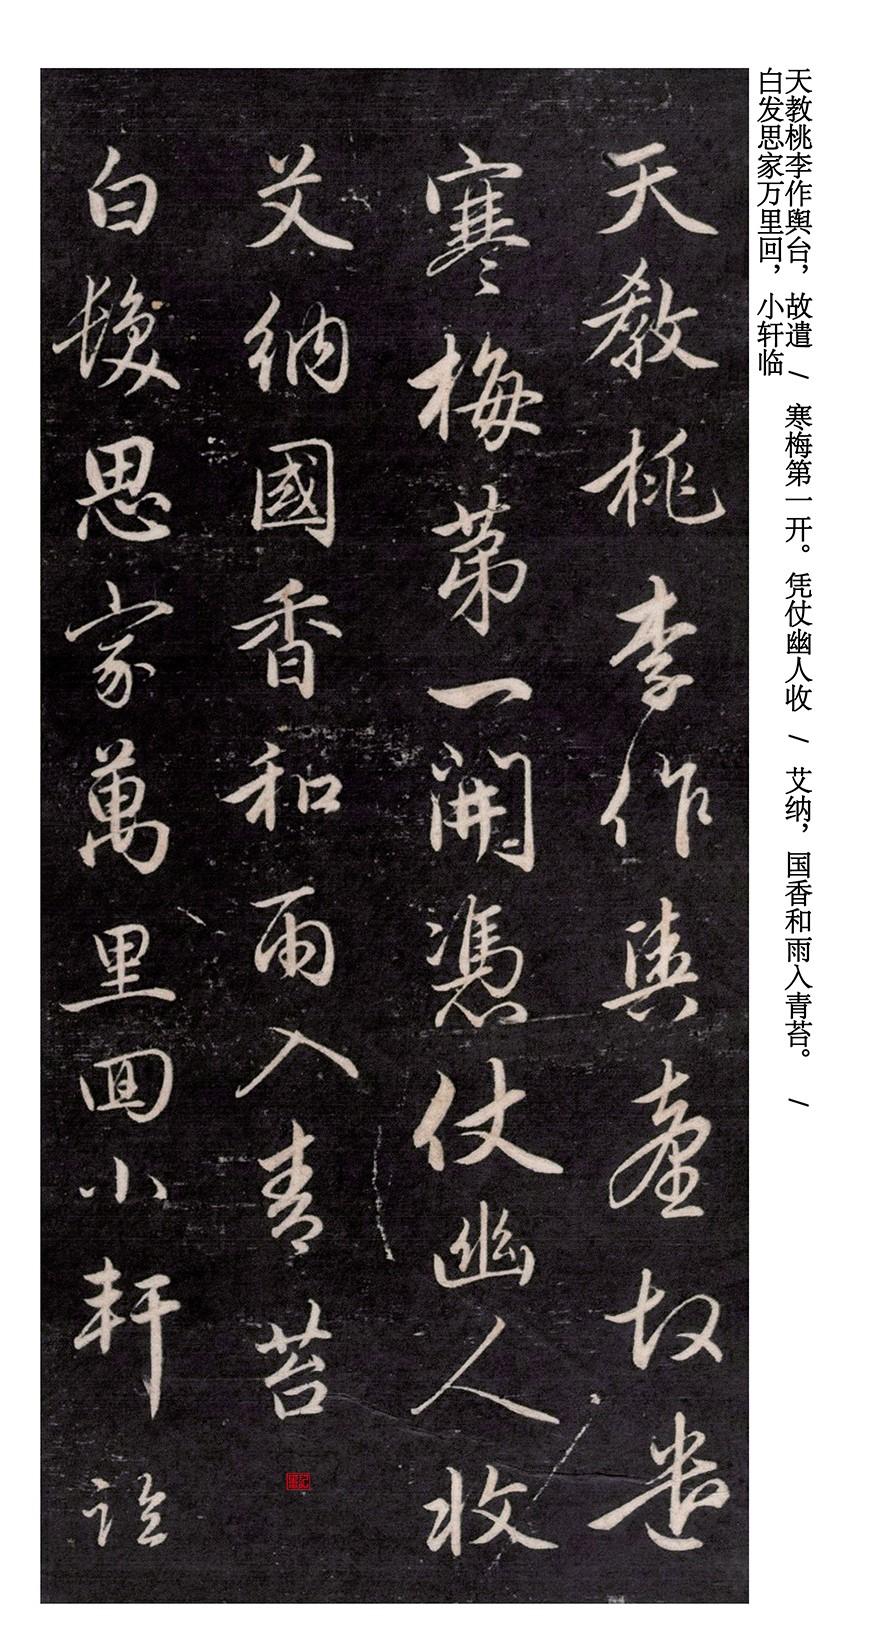 天教桃李作舆台，故遣 / 寒梅第一开。凭仗幽人收 / 艾纳，国香和雨入青苔。 /
白发思家万里回，小轩临
天教桃李作輿臺故遣
寒梅第一開憑仗幽人收
艾納國香和雨入青苔
白髮思家萬里回小軒臨